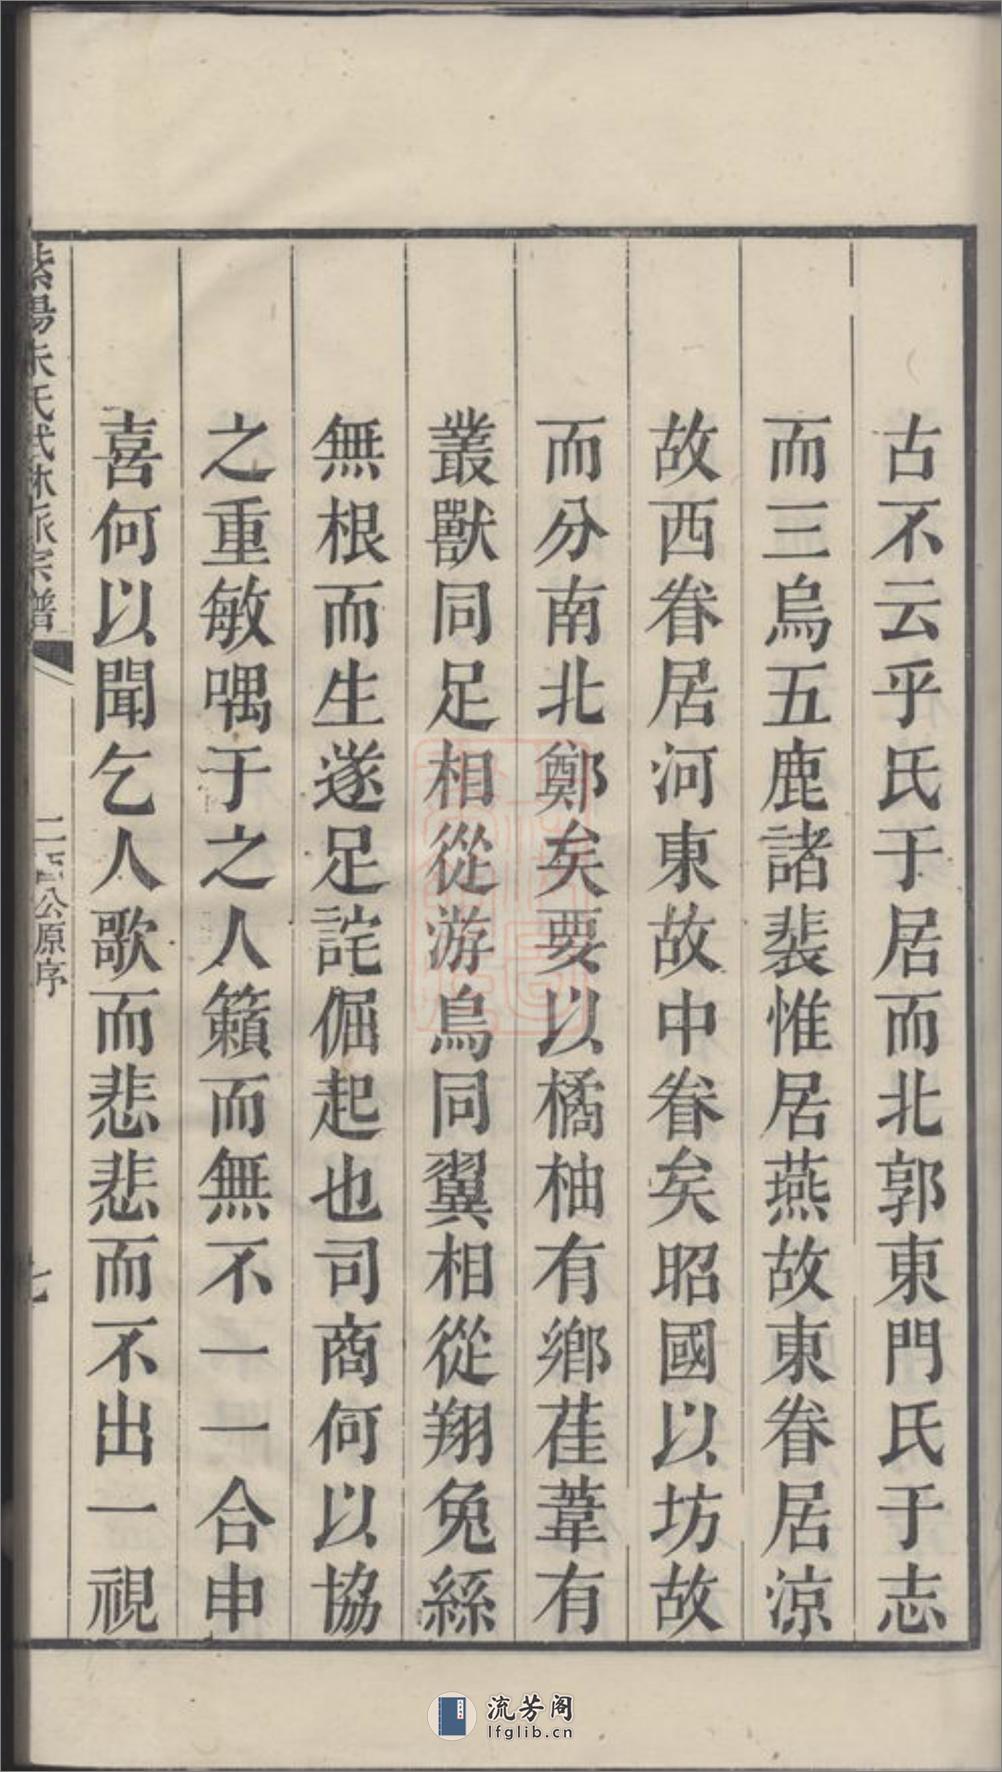 古不云乎氏于居而北郭東門氏于志
而三烏五鹿諸裴惟居燕故東眷居涼
故西眷居河東故中眷矣昭國以坊故
而分南北鄭矣要以橘柚有鄉萑葦有
叢獸同足相從游鳥同翼相從翔兔絲
無根而生遂足詫倔起也司商何以協
之重敏喁于之人籟而無不一一合申
喜何以聞乞人歌而悲悲而不出一視
紫陽朱氏武林派宗譜
公原序
七
流芳阁
lfglib.cn